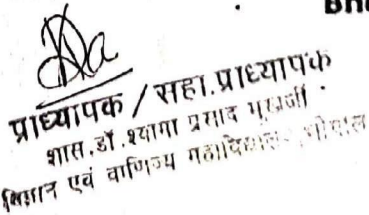 BH
प्राध्यापक / सहा.प्राध्यापक
शास.डॉ.श्यामा प्रसाद मुखर्जी
विज्ञान एवं वाणिज्य महाविद्यालय, भोपाल